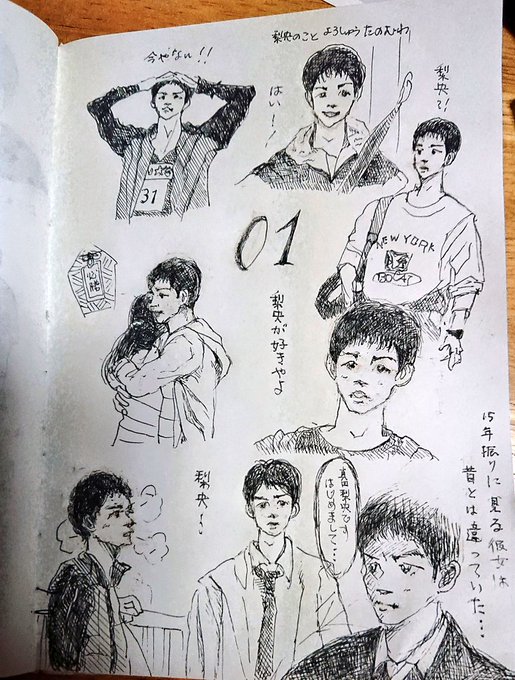 今やない!!
梨央のこと よろしゅうたのむわ
はい～!
梨央?!
31
NEW YORK
01
必勝
梨央が好きやよ
15年振りに見る彼女は
昔とは違っていた…
梨央!
真田梨央です
はじめまして…